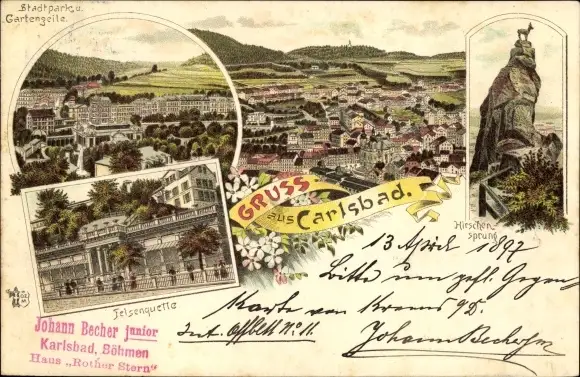 Stadtpark u.
Gartenzeile.
GRUSS
aus Carlsbad.
Hirschen-
sprung
Felsenquelle
13 April 1897
Bitte um gefl. Gegen
Karte von Krems a/D.
Johann Becher jun
Johann Becher junior
Karlsbad, Böhmen
Haus „Rother Stern"